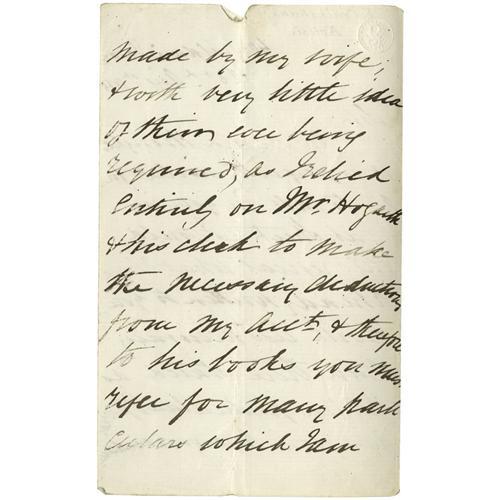 made by my wife,
& with very little idea
of them ever being
required, as I relied
Entirely on Mr. Hogarth
& his clerk to make
the necessary deductions
from my acct, & therefore
to his books you must
refer for many parti
culars which I am